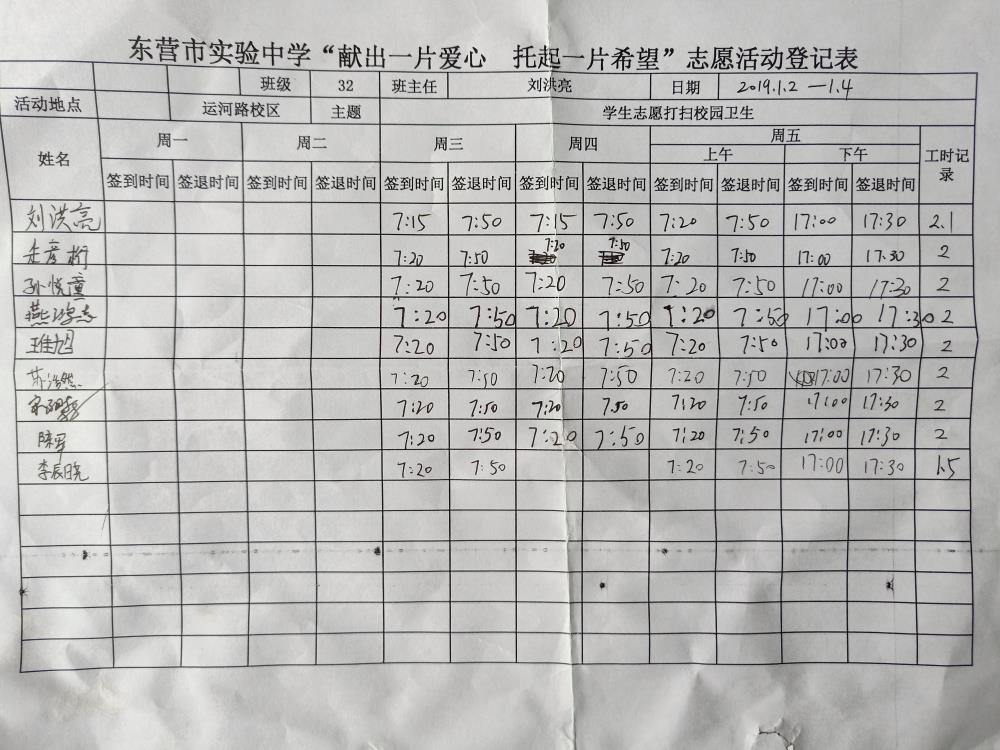 东营市实验中学“献出一片爱心 托起一片希望”志愿活动登记表
班级 32 班主任 刘洪亮 日期 2019.1.2 —1.4
活动地点 运河路校区 主题 学生志愿打扫校园卫生
姓名 周一 周二 周三 周四 周五 工时记录
上午 下午
签到时间 签退时间 签到时间 签退时间 签到时间 签退时间 签到时间 签退时间 签到时间 签退时间 签到时间 签退时间
刘洪亮 7:15 7:50 7:15 7:50 7:20 7:50 17:00 17:30 2.1
7:20 7:50 7:20 7:50 7:20 7:50 17:00 17:30 2
孙悦童 7:20 7:50 7:20 7:50 7:20 7:50 17:00 17:30 2
7:20 7:50 7:20 7:50 7:20 7:50 17:00 17:30 2
王维旭 7:20 7:50 7:20 7:50 7:20 7:50 17:00 17:30 2
苏浩然 7:20 7:50 7:20 7:50 7:20 7:50 17:00 17:30 2
7:20 7:50 7:20 7:50 7:20 7:50 17:00 17:30 2
7:20 7:50 7:20 7:50 7:20 7:50 17:00 17:30 2
李辰晓 7:20 7:50 7:20 7:50 17:00 17:30 1.5